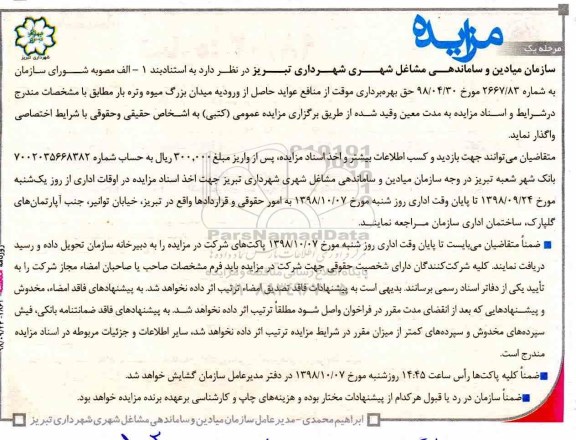 مرحله یک
مزایده
شهرداری تبریز
سازمان میادین و ساماندهی مشاغل شهری شهرداری تبریز در نظر دارد به استنادبند ۱ - الف مصوبه شورای سازمان
به شماره ۲۶۶۷/۸۳ مورخ ۹۸/۰۴/۳۰ حق بهره‌برداری موقت از منافع عواید حاصل از ورودیه میدان بزرگ میوه وتره بار مطابق با مشخصات مندرج
درشرایط و اسناد مزایده به مدت معین وقید شده از طریق برگزاری مزایده عمومی (کتبی) به اشخاص حقیقی وحقوقی با شرایط اختصاصی
واگذار نماید.
متقاضیان می‌توانند جهت بازدید و کسب اطلاعات بیشتر و اخذ اسناد مزایده، پس از واریز مبلغ ۳۰۰,۰۰۰ ریال به حساب شماره ۷۰۰۲۰۳۵۶۶۸۳۸۲
بانک شهر شعبه تبریز در وجه سازمان میادین و ساماندهی مشاغل شهری شهرداری تبریز جهت اخذ اسناد مزایده در اوقات اداری از روز یک‌شنبه
مورخ ۱۳۹۸/۰۹/۲۴ تا پایان وقت اداری روز شنبه مورخ ۱۳۹۸/۱۰/۰۷ به امور حقوقی و قراردادها واقع در تبریز، خیابان توانیر، جنب آپارتمان‌های
گلپارک، ساختمان اداری سازمان مراجعه نمایند.
ضمناً متقاضیان می‌بایست تا پایان وقت اداری روز شنبه مورخ ۱۳۹۸/۱۰/۰۷ پاکت‌های شرکت در مزایده را به دبیرخانه سازمان تحویل داده و رسید
دریافت نمایند. کلیه شرکت‌کنندگان دارای شخصیت حقوقی جهت شرکت در مزایده باید فرم مشخصات صاحب یا صاحبان امضاء مجاز شرکت را به
تأیید یکی از دفاتر اسناد رسمی برسانند. بدیهی است به پیشنهادات فاقد تصدیق امضاء ترتیب اثر داده نخواهد شد. به پیشنهادهای فاقد امضاء، مخدوش
و پیشنهادهایی که بعد از انقضای مدت مقرر در فراخوان واصل شود مطلقاً ترتیب اثر داده نخواهد شد. به پیشنهادهای فاقد ضمانتنامه بانکی، فیش
سپرده‌های مخدوش و سپرده‌های کمتر از میزان مقرر در شرایط مزایده ترتیب اثر داده نخواهد شد، سایر اطلاعات و جزئیات مربوطه در اسناد مزایده
مندرج است.
ضمناً کلیه پاکت‌ها رأس ساعت ۱۴:۴۵ روزشنبه مورخ ۱۳۹۸/۱۰/۰۷ در دفتر مدیرعامل سازمان گشایش خواهد شد.
ضمناً سازمان در رد یا قبول هرکدام از پیشنهادات مختار بوده و هزینه‌های چاپ و کارشناسی برعهده برنده مزایده خواهد بود.
ابراهیم محمدی - مدیرعامل سازمان میادین و ساماندهی مشاغل شهری شهرداری تبریز
ParsNamadData